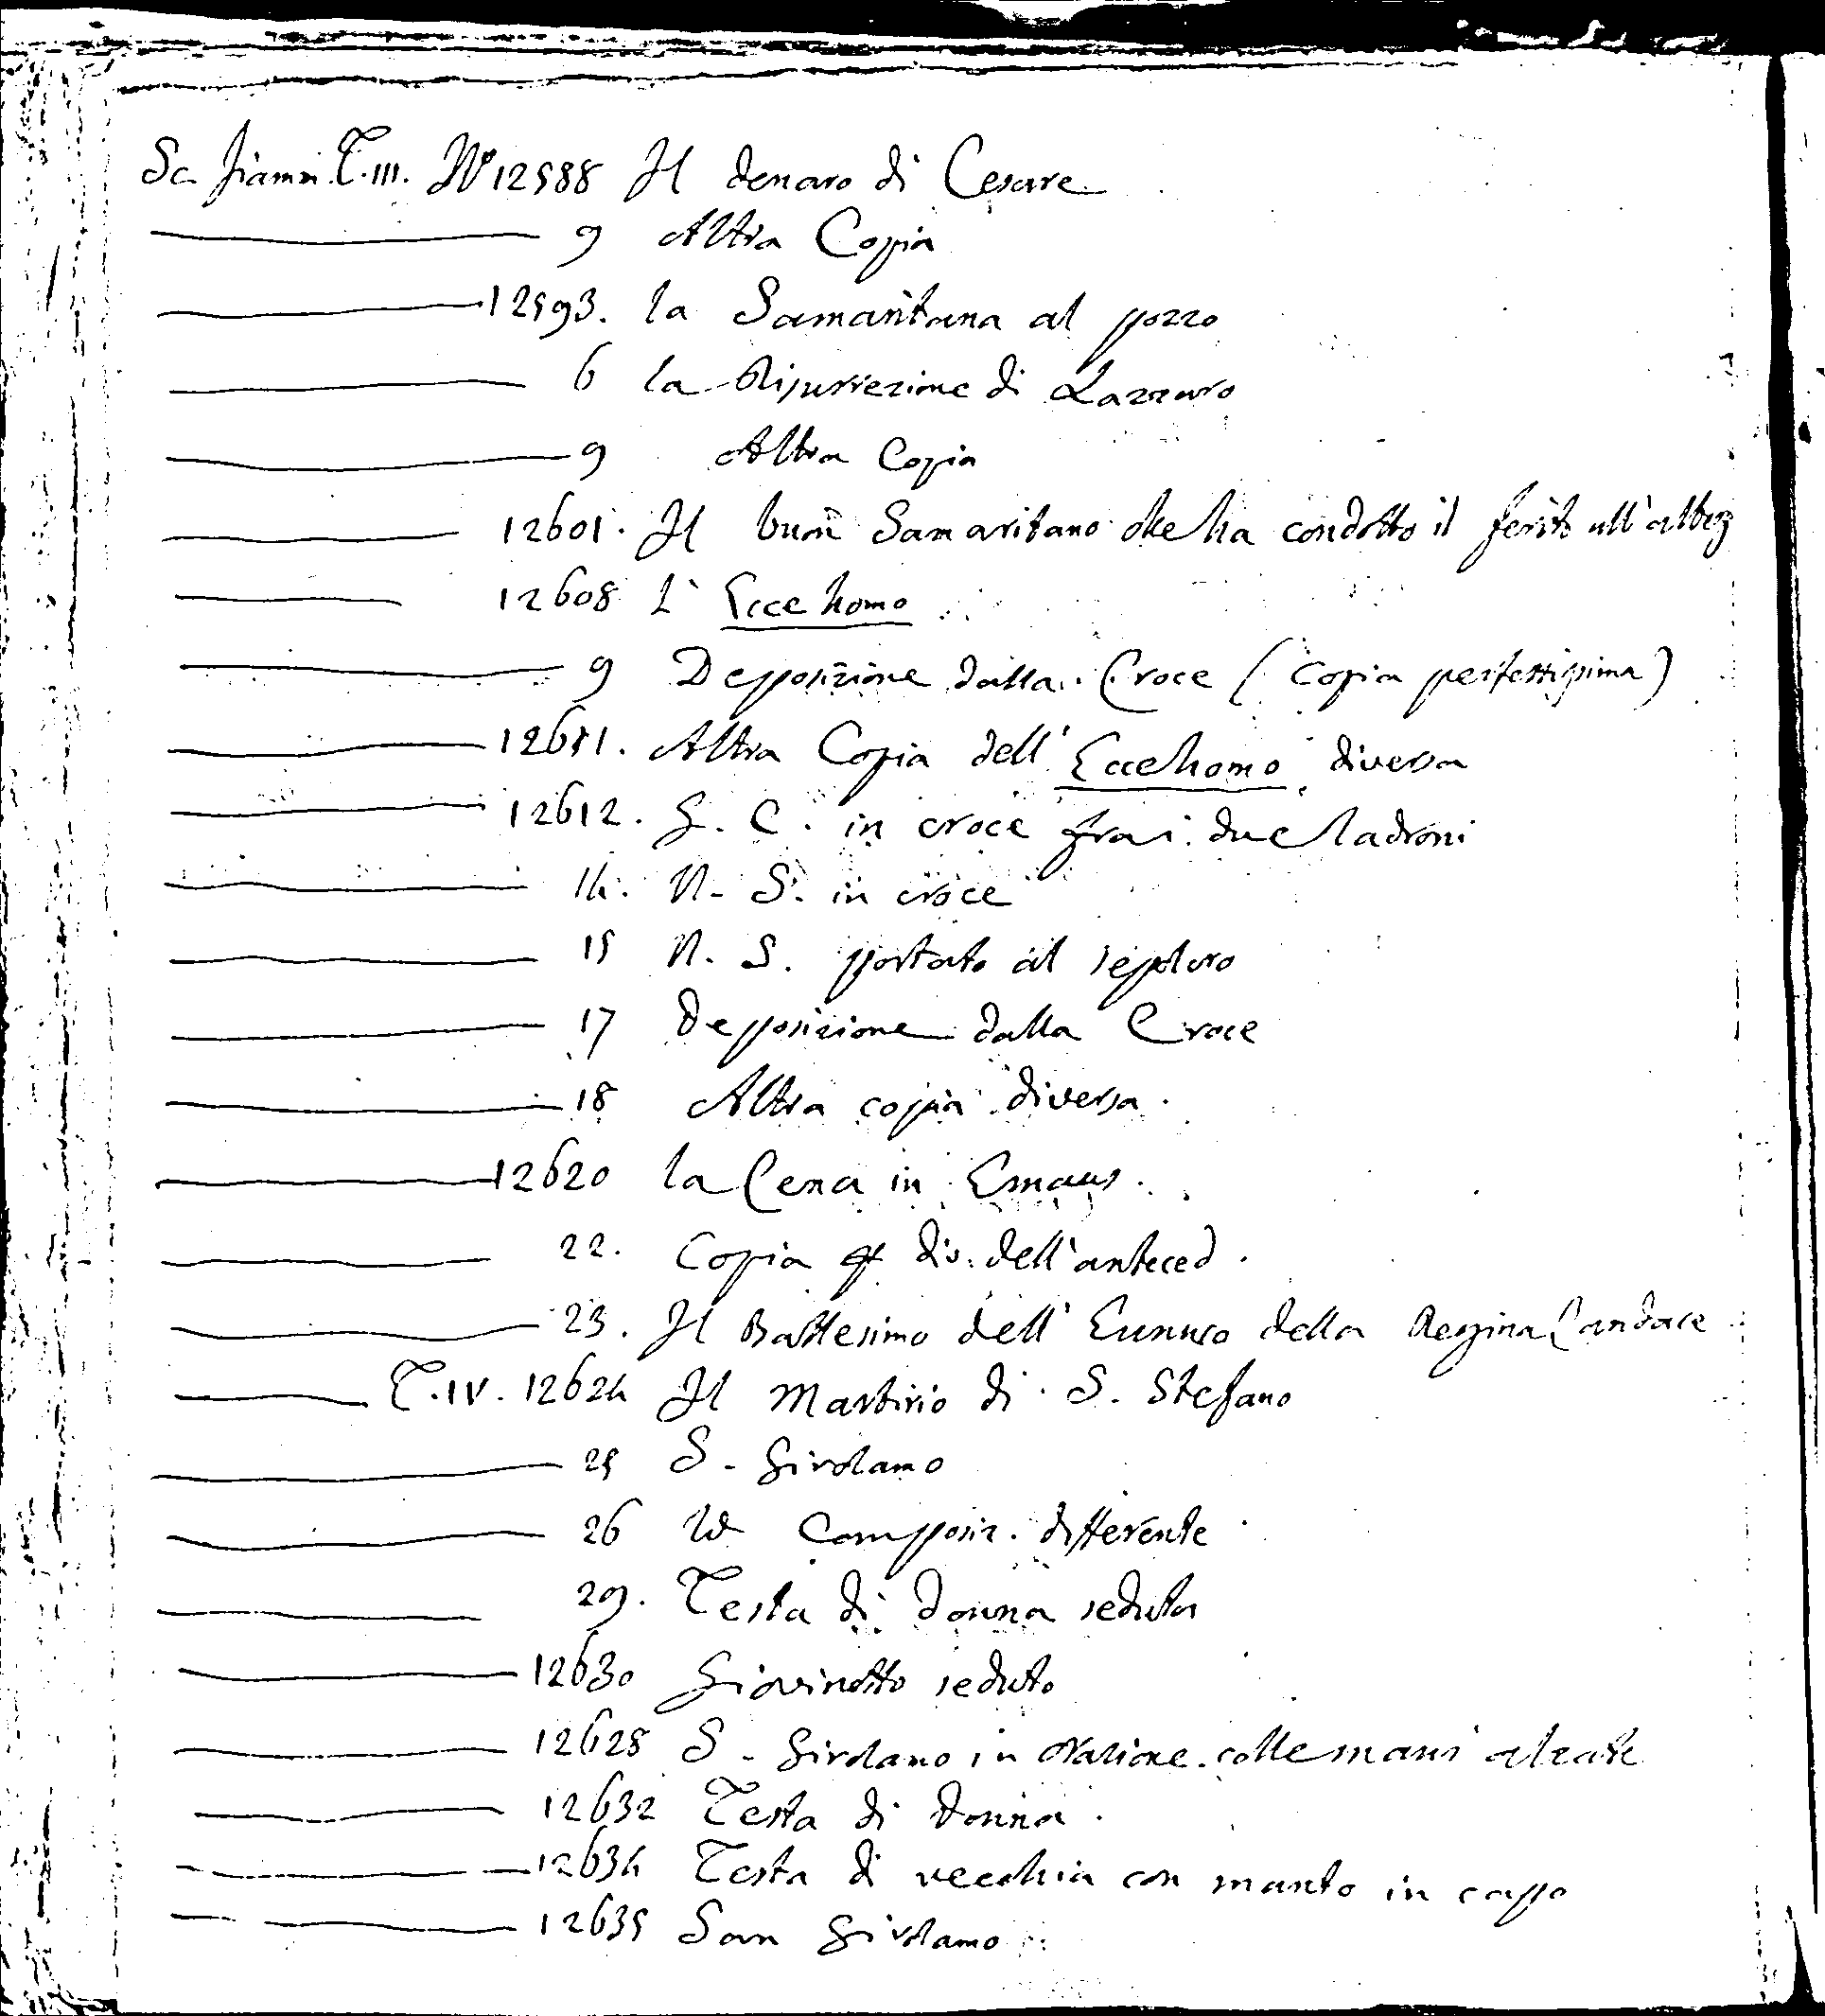 Sc. fiamm. T. III. N° 12588 Il denaro di Cesare
9 Altra Copia
12593. la Samaritana al pozzo
6 la Risurrezione di Lazzaro
9 Altra Copia
12601. Il buon Samaritano che ha condotto il ferito all'alberg
12608 L' Ecce homo
9 Deposizione dalla Croce (Copia perfettissima)
12611. Altra Copia dell' Ecce homo diversa
12612. G. C. in croce fra i due ladroni
14. N. S. in croce
15 N. S. portato al sepolcro
17 Deposizione dalla Croce
18 Altra copia diversa.
12620 la Cena in Emaus.
22. Copia div. dell'anteced.
23. Il Battesimo dell' Eunuco della Regina Candace
T. IV. 12624 Il Martirio di S. Stefano
25 S. Girolamo
26 Id Composiz. differente
29. Testa di donna seduta
12630 Giovinotto seduto
12628 S. Girolamo in orazione colle mani alzate
12632 Testa di donna.
12634 Testa di vecchia con manto in capo
12635 San Girolamo